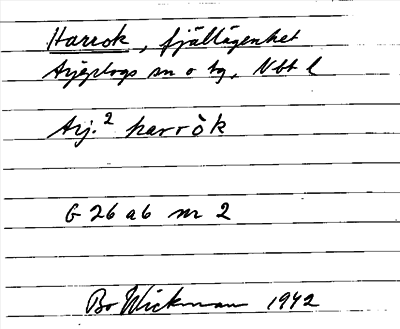 Harrok, fjällägenhet
Arjeplogs sn o tg, Nbt l
Arj.² harròk
G 26 a6 nr 2
Bo Wickman 1942